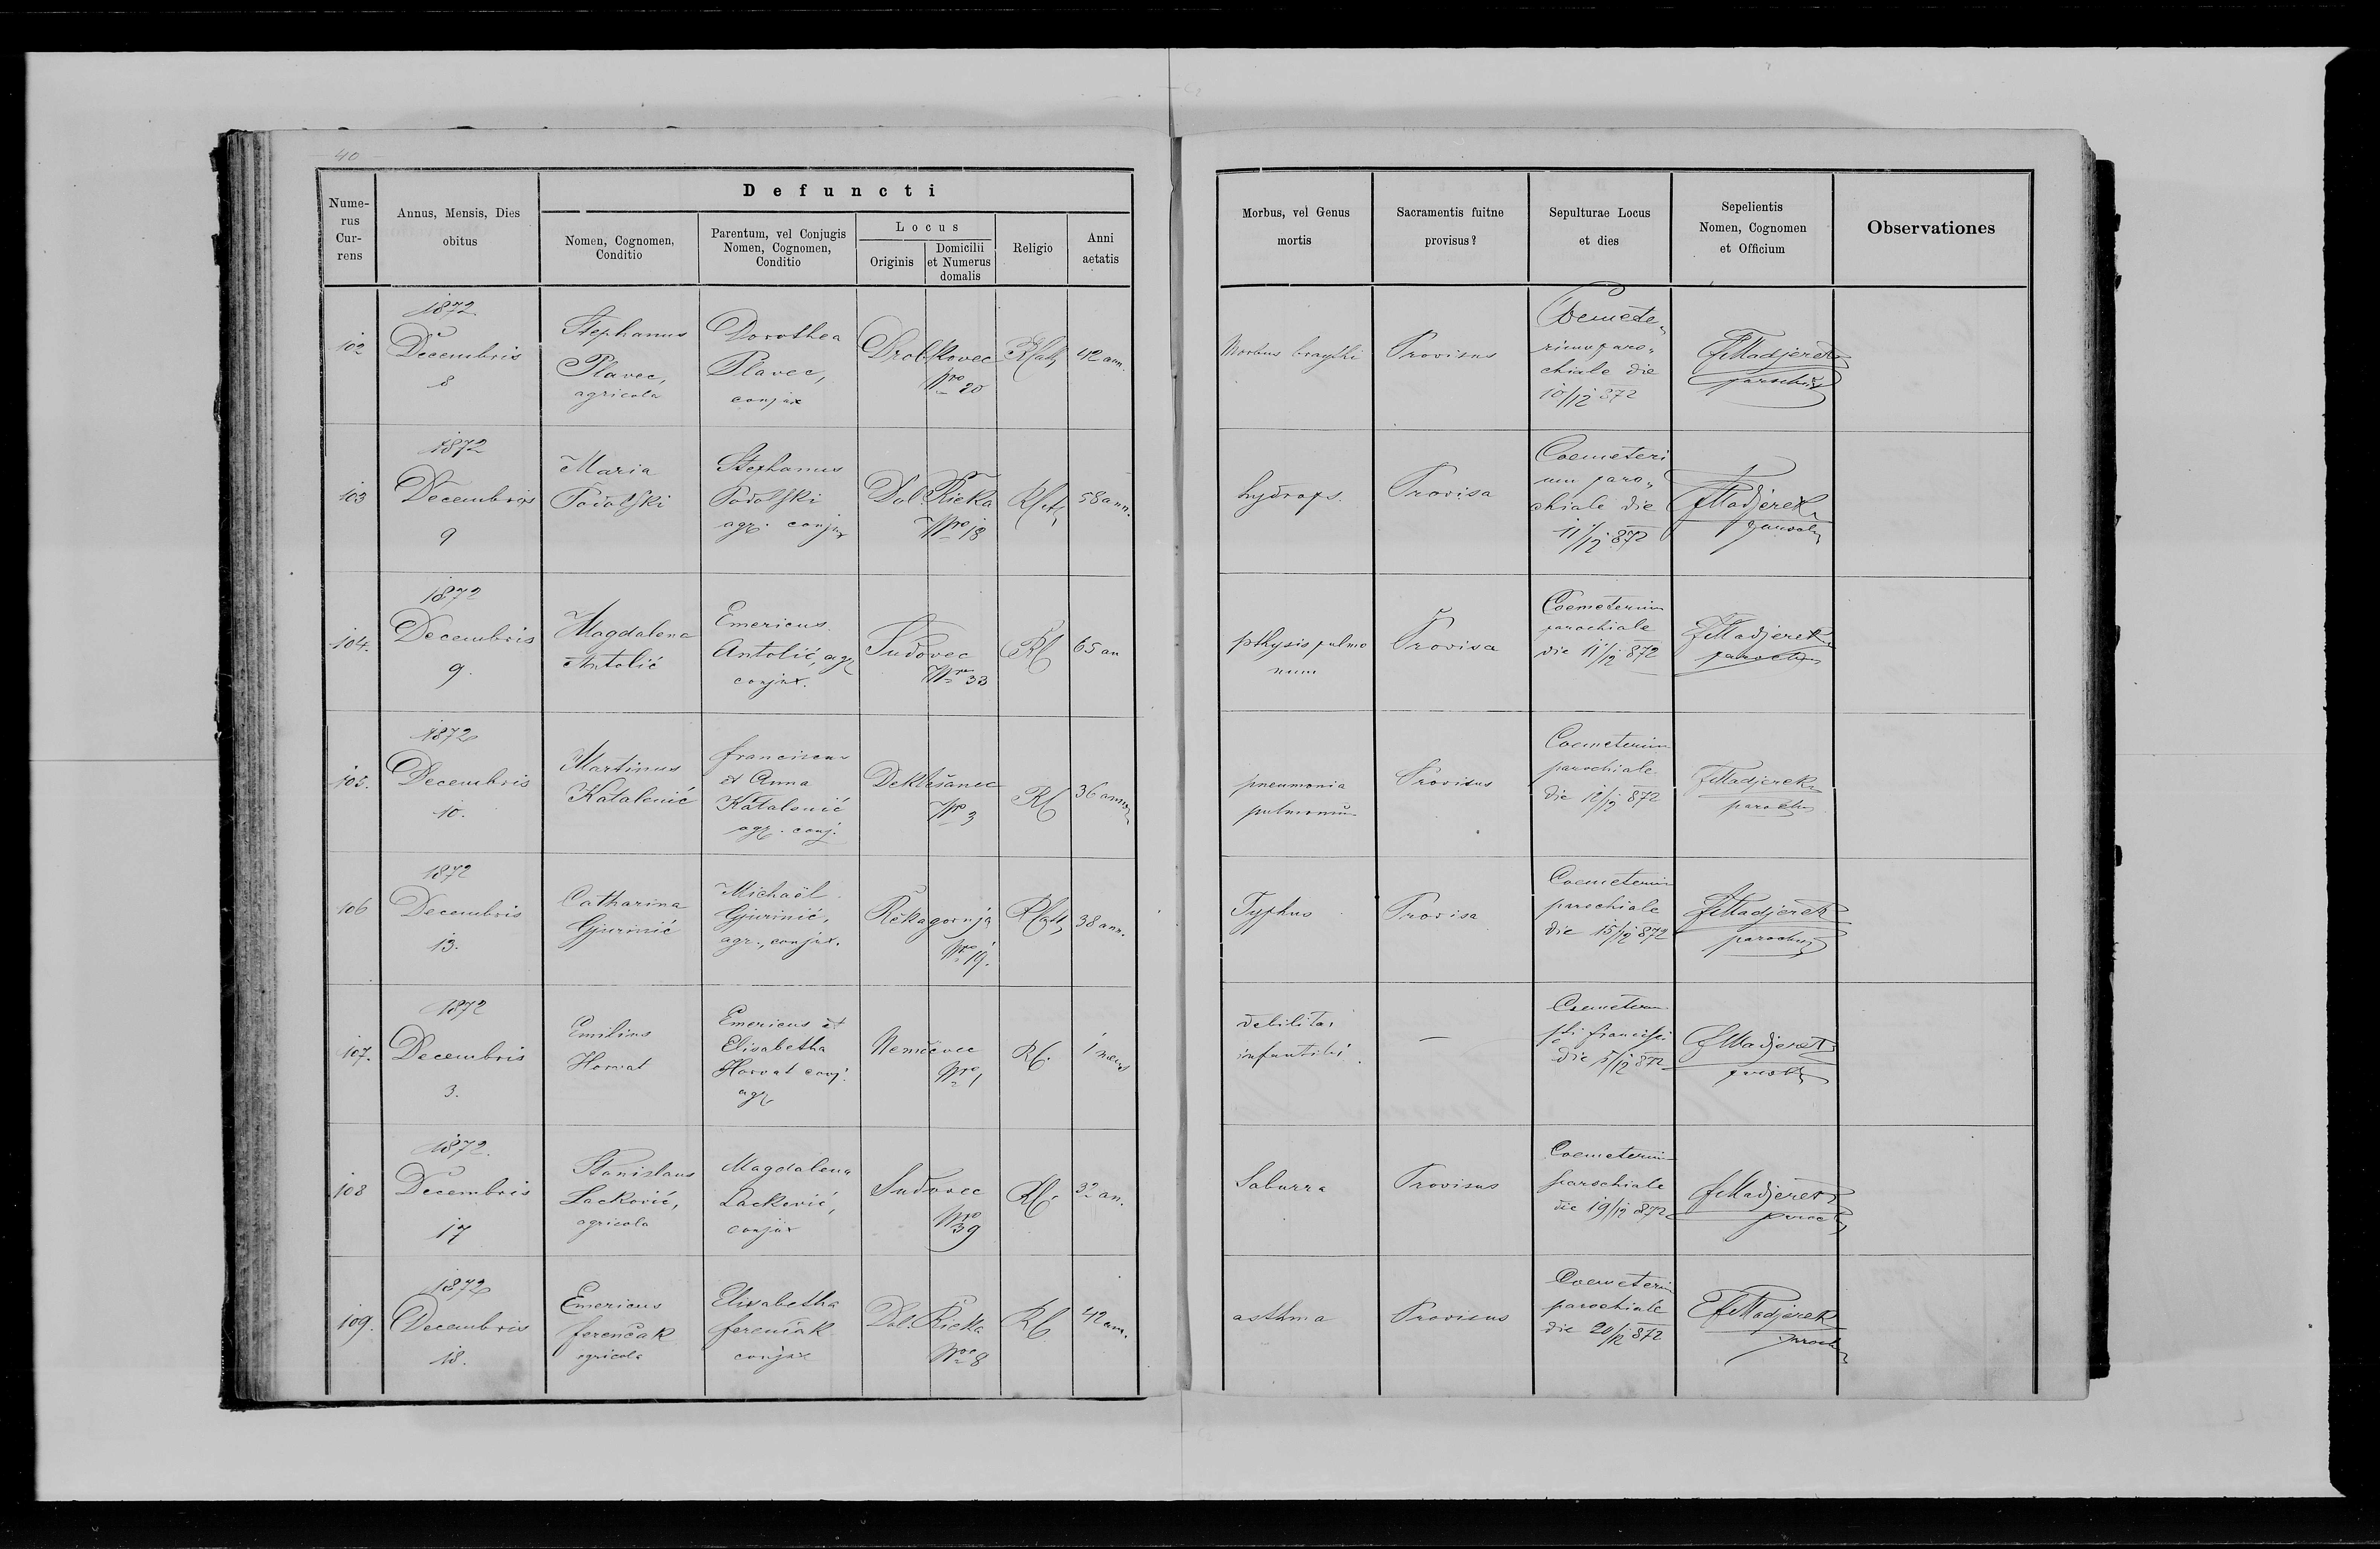 40
Defuncti
Nume-
rus
Cur-
rens
Annus, Mensis, Dies
obitus
Nomen, Cognomen,
Conditio
Parentum, vel Conjugis
Nomen, Cognomen,
Conditio
Locus
Originis
Domicilii
et Numerus
domalis
Religio
Anni
aetatis
Morbus, vel Genus
mortis
Sacramentis fuitne
provisus?
Sepulturae Locus
et dies
Sepelientis
Nomen, Cognomen
et Officium
Observationes
102
1872
Decembris
8
Stephanus
Plavec,
agricola
Dorothea
Plavec,
conjux
Drobkovec
Nro 20
RCath
42 ann.
Morbus
Provisus
Coemete„
rium paro„
chiale die
10/12 872
FMadjerek
parochus
103
1872
Decembris
9
Maria
Podolski
Stephanus
Podolski
agr. conjux
Dol. Rieka
Nro 18
RCath
58 ann.
hydrops.
Provisa
Coemeteri
um paro„
chiale die
11/12 872
FMadjerek
paroch
104.
1872
Decembris
9.
Magdalena
Antolić
Emericus
Antolić, agr
conjux.
Sudovec
Nro 33
RC
65 an
pthysis pulmo
num
Provisa
Coemeterium
parochiale
die 11/12 872
FMadjerek
parochus
105.
1872
Decembris
10.
Martinus
Katalenić
franciscus
et Anna
Katalenić
agr. conj.
Deklešanec
Nro 3
RC
36 annor
pneumonia
pulmonum
Provisus
Coemeterium
parochiale
die 12/12 872
FMadjerek
parochus
106
1872
Decembris
13.
Catharina
Gjurinić
Michaël
Gjurinić,
agr., conjux.
Rěkagornja
Nro 19.
RCath
38 ann.
Typhus
Provisa
Coemeterium
parochiale
die 15/12 872
FMadjerek
parochus
107.
1872
Decembris
3.
Emilius
Horvat
Emericus et
Elisabetha
Horvat conj.
agr
Nemčevec
Nro 1
RC.
1 mens
debilitas
infantilis
—
Coemeterium
sti francisci
die 5/12 872
FMadjerek
paroch
108
1872.
Decembris
17
Stanislaus
Lacković,
agricola
Magdalena
Lacković,
conjux
Sudovec
Nro 39
RC.
32 an.
Saburra
Provisus
Coemeterium
parochiale
die 19/12 872
FMadjerek
paroch
109.
1872
Decembris
18.
Emericus
ferenčak
agricola
Elisabetha
ferenčak
conjux
Dol. Rieka
Nro 8
RC
42 ann.
asthma
Provisus
Coemeterium
parochiale
die 20/12 872
FMadjerek
paroch